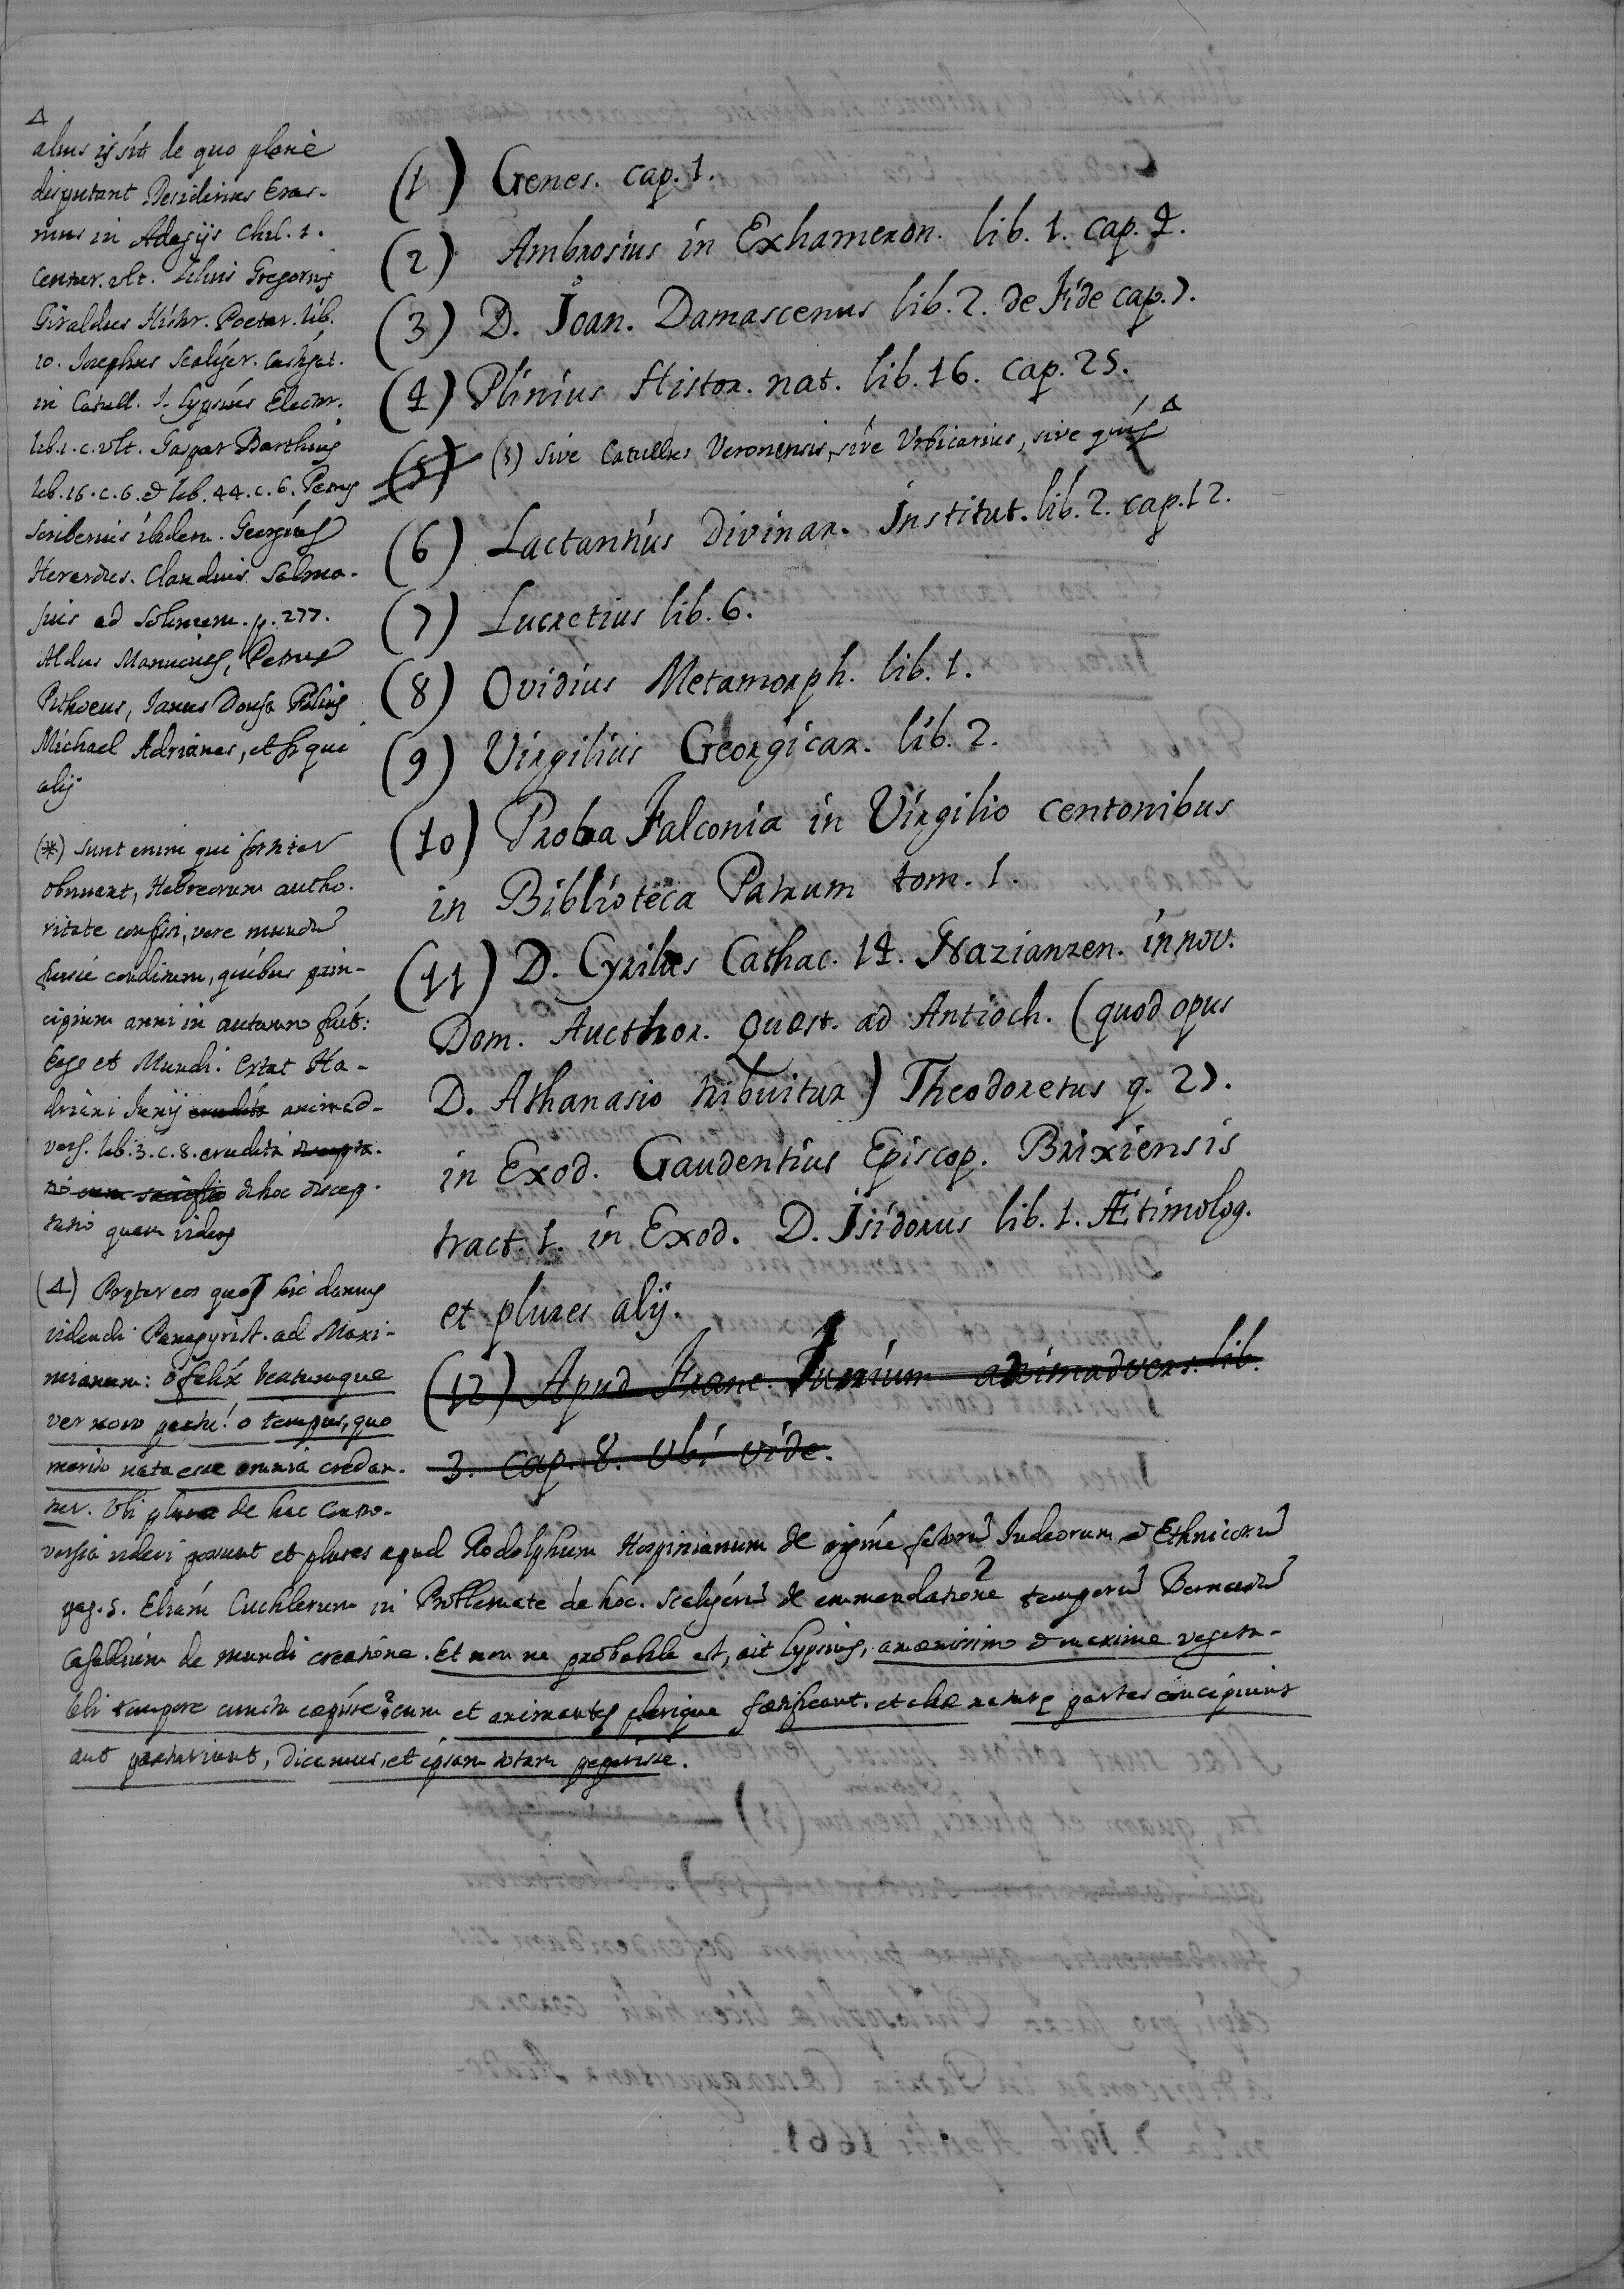 Δ
alius is sit de quo plené
disputant Desiderius Eras-
mus in Adagijs Chil. 1.
Centur. vlt. Lilius Gregorius
Giraldus Histor. Poetar. lib.
10. Josephus Scaliger. Castigat.
in Catull. J. Lypsius Elector.
lib. 1. c. vlt. Gaspar Barthius
lib. 16. c. 6. et lib. 44. c. 6. Petrus
Scriberius ibidem. Georgius
Claudius Salma-
sius ad Solinum. p. 277.
Aldus Manucius, Petrus
Pithoeus, Janus Dousa
Michael Adrianus, et
alij
(*) sunt enim qui fortiter
obnuant, Hebreorum autho-
ritate confisi, vere mundū
fuisse conditum, quibus prin-
cipium anni in autumno fuit:
Ergo et Mundi. Extat Ha-
driani Junij erudita animad-
vers. lib. 3. c. 8. erudita
de hoc discep-
tatio quam videas
(Δ) Preter eos quos hic damus
videndi Panegyrist. ad Maxi-
mianum: o felix beatumque
ver novo partu! o tempus, quo
merito nata esse omnia credan-
tur. Vbi plura de hac contro-
versia videri possunt et plures apud Rodolphum Hospinianum de origine festorū Judeorum et Ethnicorū
pag. 5. Eliam Cuchlerum in Problemate de hoc. Scaligerū de emmendatione temporū Bernardū
de mundi creatione. Et non ne probabile est, ait Lypsius, amoenissimo et maxime vegeta-
bili tempore cuncta cepisse? cum et animantes plerique foetificant. et aliæ nature partes concipiunt
aut parturiunt, dicamus, et ipsam totam peperisse.
(1) Genes. cap. 1.
(2) Ambrosius in Exhameron. lib. 1. cap. 4.
(3) D. Joan. Damascenus lib. 2. de Fide cap. 7.
(4) Plinius Histor. nat. lib. 16. cap. 25.
(5) (5) Sive Catullus Veronensis, sive Vrbicarius, sive quis Δ
(6) Lactantius Divinar. Institut. lib. 2. cap. 12.
(7) Lucretius lib. 6.
(8) Ovidius Metamorph. lib. 1.
(9) Virgilius Georgicar. lib. 2.
(10) Proba Falconia in Virgilio centonibus
in Biblioteca Patrum tom. 1.
(11) D. Cyrilus Cathac. 14. Nazianzen. in nov.
Dom. Aucthor. Quæst. ad Antioch. (quod opus
D. Athanasio tribuitur) Theodoretus q. 27.
in Exod. Gaudentius Episcop. Brixiensis
tract. 1. in Exod. D. Isidorus lib. 1. Ætimolog.
et plures alij.
(12) Apud Franc. Junium animadvers. lib.
3. cap. 8. Vbi vide.